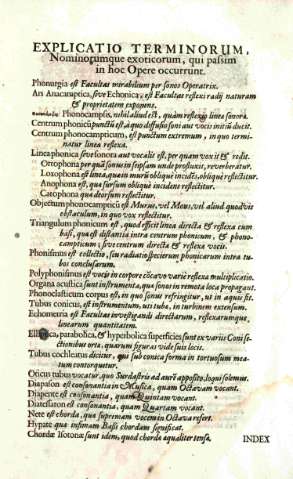 EXPLICATIO TERMINORUM,
Nominorumque exoticorum, qui passim
in hoc Opere occurrunt.
Phonurgia est Facultas mirabilium per sonos Operatrix.
Ars Anacamptica, sive Echonica, est Facultas reflexi radij naturam
& proprietatem exponens.
Phonocampsis, nihil aliud est, quàm reflexio lineæ sonoræ.
Centrum phonicũ punctũ est, à quo diffusio soni aut vocis initiũ ducit.
Centrum phonocampticum, est punctum extremum, in quo terminatur
linea reflexa.
Linea phonica sive sonora aut vocalis est, per quam vox it & redit.
Ortophona per quã sonus in seipsam unde profluxit, reverberatur.
Loxophona est linea, quæ in murũ obliquè incidẽs, obliquè reflectitur.
Anophona est, quæ sursum obliquè incidens reflectitur.
Catophona quæ deorsum reflectitur.
Objectum phonocampticũ est Murus, vel Mons, vel aliud quodvis
obstaculum, in quo vox reflectitur.
Triangulum phonicum est, quod efficit linea directa & reflexa cum
basi, quæ est distantia intra centrum phonicum, & phonocampticum
, sive centrum directæ & reflexæ vocis.
Phonismus est collectio, seu radiatio specierum phonicarum intra tubos
conclusarum.
Polyphonismus est vocis in corpore cõcavo variè reflexa multiplicatio.
Organa acustica sunt instrumenta, quæ sonos in remota loca propagant.
Phonoclasticum corpus est, in quo sonus refringitur, ut in aquis fit.
Tubus conicus, est instrumentum, uti tuba, in turbinem extensum.
Echometria est Facultas investigandi directarum, reflexarumque,
linearum quantitatem.
Elliptica, parabolica, & hyperbolica superficies sunt ex variis Coni sectionibus
ortæ, quarum figuras vide suis locis.
Tubus cochleatus dicitur, qui sub conica forma in tortuosum meatum
contorquetur.
Oticus tubus vocatur, quo Surdastris ad auri apposito, loqui solemus.
Diapason est consonantia in Musica, quam Octavam vocant.
Diapente est consonantia, quam Quintam vocant.
Diatessaron est consonantia, quam Quartam vocant.
Nete est chorda, quæ supremam vocem in Octava refert.
Hypate quæ infimam Bassi chordam significat.
Chordæ Isotonæ sunt idem, quod chordæ æqualiter tensæ.
INDEX